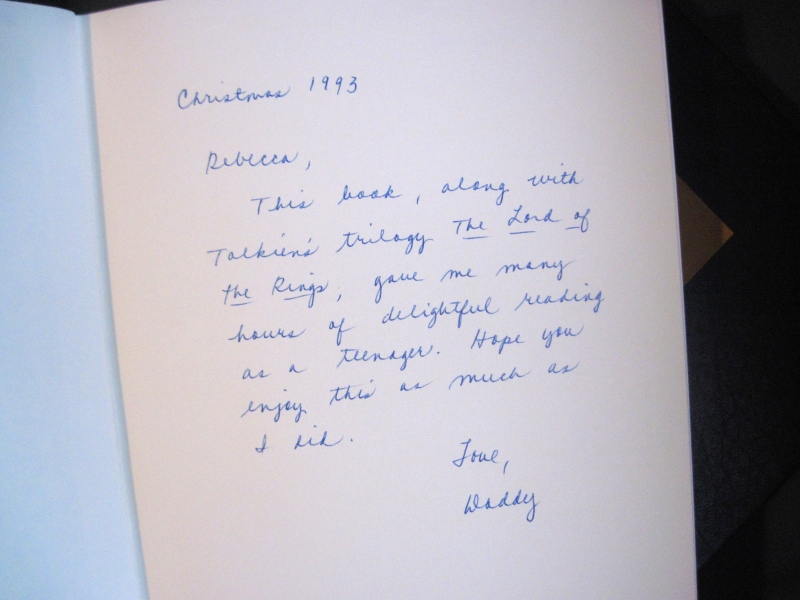 Christmas 1993
Rebecca,
This book, along with
Tolkien's trilogy The Lord of
the Rings, gave me many
hours of delightful reading
as a teenager. Hope you
enjoy this as much as
I did.
Love,
Daddy